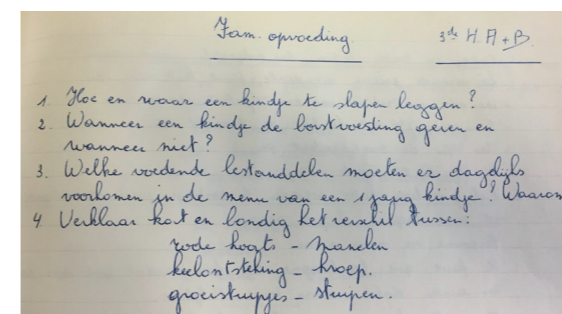 Fam. opvoeding. 3de H. A + B.
1. Hoe en waar een kindje te slapen leggen?
2. Wanneer een kindje de borstvoeding geven en
wanneer niet?
3. Welke voedende bestanddelen moeten er dagelijks
voorkomen in de menu van een 1 jarig kindje? Waarom
4. Verklaar kort en bondig het verschil tussen:
rode koorts - mazelen
keelontsteking - kroep.
groeistuipjes - stuipen.